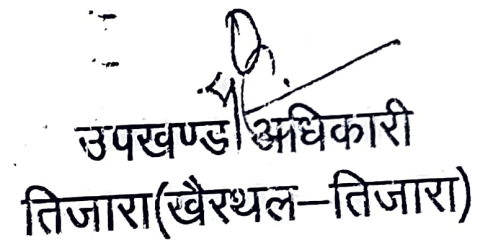 उपखण्ड अधिकारी
तिजारा(खैरथल–तिजारा)